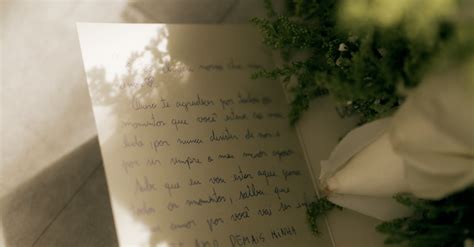 nosso
Quero te agradecer por todos os
momentos que você esteve ao meu
lado, por nunca desistir de nós e
por ser sempre o meu maior apoio
Saiba que eu vou estar aqui para
todos os momentos, saiba que
amor por você vai ser
AMO DEMAIS MINHA